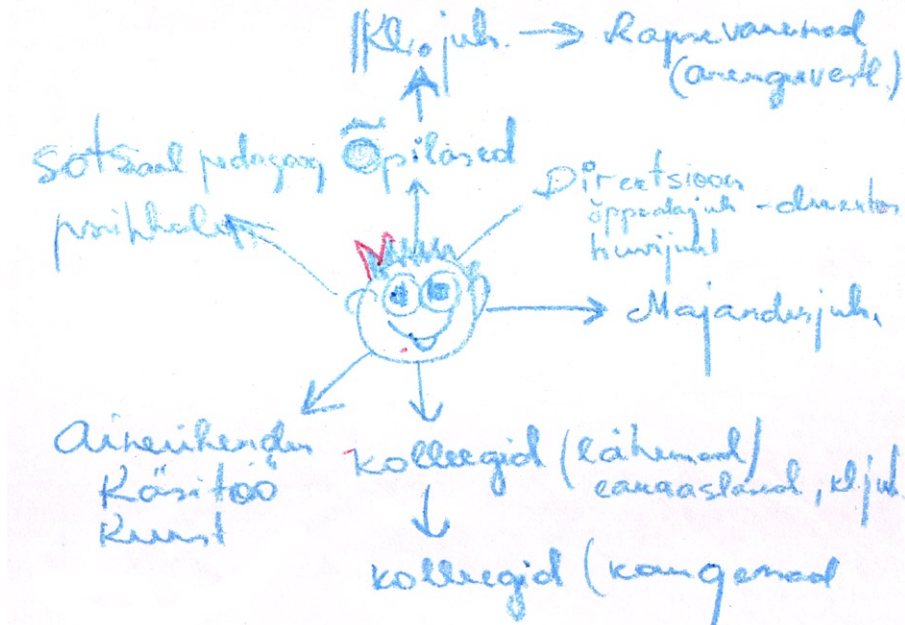 Kl. juh. → Lapsevanemad
(arenguvestl.)
Sotsiaalpedagoog
psühholoog
Õpilased
Direktsioon
õppealajuh - direktor
huvijuht
Majandusjuh.
Aineühendus
Käsitöö
Kunst
kolleegid (lähemad)
eakaaslased, kl.juh.
kolleegid (kaugemad